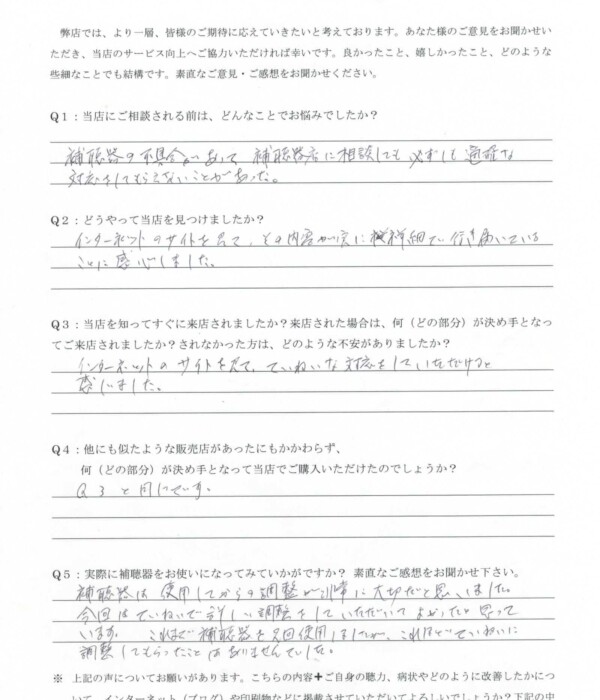 弊店では、より一層、皆様のご期待に応えていきたいと考えております。あなた様のご意見をお聞かせい
ただき、当店のサービス向上へご協力いただければ幸いです。良かったこと、嬉しかったこと、どのような
些細なことでも結構です。素直なご意見・ご感想をお聞かせください。
Q1：当店にご相談される前は、どんなことでお悩みでしたか？
補聴器の不具合があって 補聴器店に相談しても 必ずしも適確な
対応をしてもらえないことがあった。
Q2：どうやって当店を見つけましたか？
インターネットのサイトを見て、その内容が実に詳細で行き届いている
ことに感心しました。
Q3：当店を知ってすぐに来店されましたか？来店された場合は、何（どの部分）が決め手となっ
てご来店されましたか？されなかった方は、どのような不安がありましたか？
インターネットのサイトを見て、ていねいな対応をしていただけると
感じました。
Q4：他にも似たような販売店があったにもかかわらず、
何（どの部分）が決め手となって当店でご購入いただけたのでしょうか？
Q3と同じです。
Q5：実際に補聴器をお使いになってみていかがですか？ 素直なご感想をお聞かせ下さい。
補聴器は使用してからの調整が非常に大切だと思いました。
今回はていねいで詳しい調整をしていただいてよかったと思って
います。 これまで補聴器を 回使用しましたが、これほどていねいに
調整してもらったことはありませんでした。
※ 上記の声についてお願いがあります。こちらの内容＋ご自身の聴力、病状やどのように改善したかにつ
いて、インターネット（ブログ）や印刷物などに掲載させていただいてよろしいでしょうか？下記の中